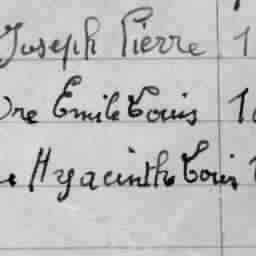 Joseph Pierre 1
Emile Louis 1
Hyacinthe Louis 1